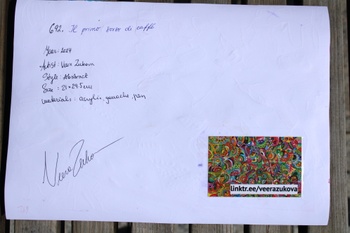 692. Il primo sorso di caffè
Year: 2024
Artist: Veera Zukova
Style: Abstract
Size: 21x29.5cm
materials: acrylic, gouache, pen
Veera Zukova
linktr.ee/veerazukova